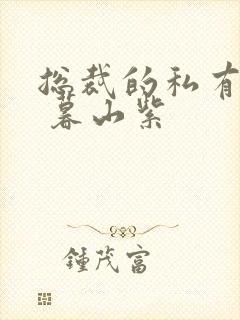 总裁的私有
暮山紫
鍾茂富